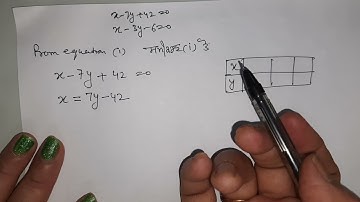 x-7y+42=0
x-3y-6=0
From equation (1) समीकरण (i) से
x-7y+42=0
x=7y-42
x
y